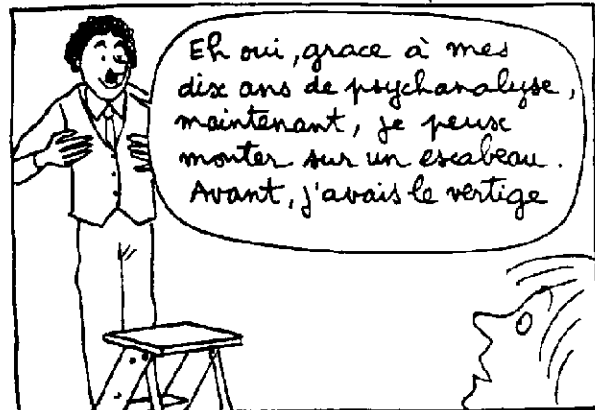 Eh oui, grace à mes
dix ans de psychanalyse,
maintenant, je peux
monter sur un escabeau.
Avant, j'avais le vertige